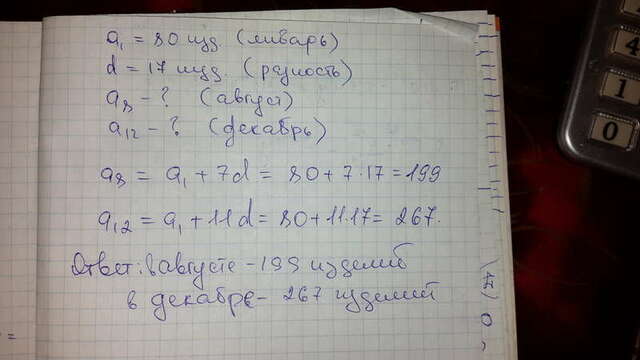 a₁ = 80 изд. (январь)
d = 17 изд. (разность)
a₈ - ? (август)
a₁₂ - ? (декабрь)
a₈ = a₁ + 7d = 80 + 7·17 = 199
a₁₂ = a₁ + 11d = 80 + 11·17 = 267.
Ответ: в августе - 199 изделий
в декабре - 267 изделий
4
1
0